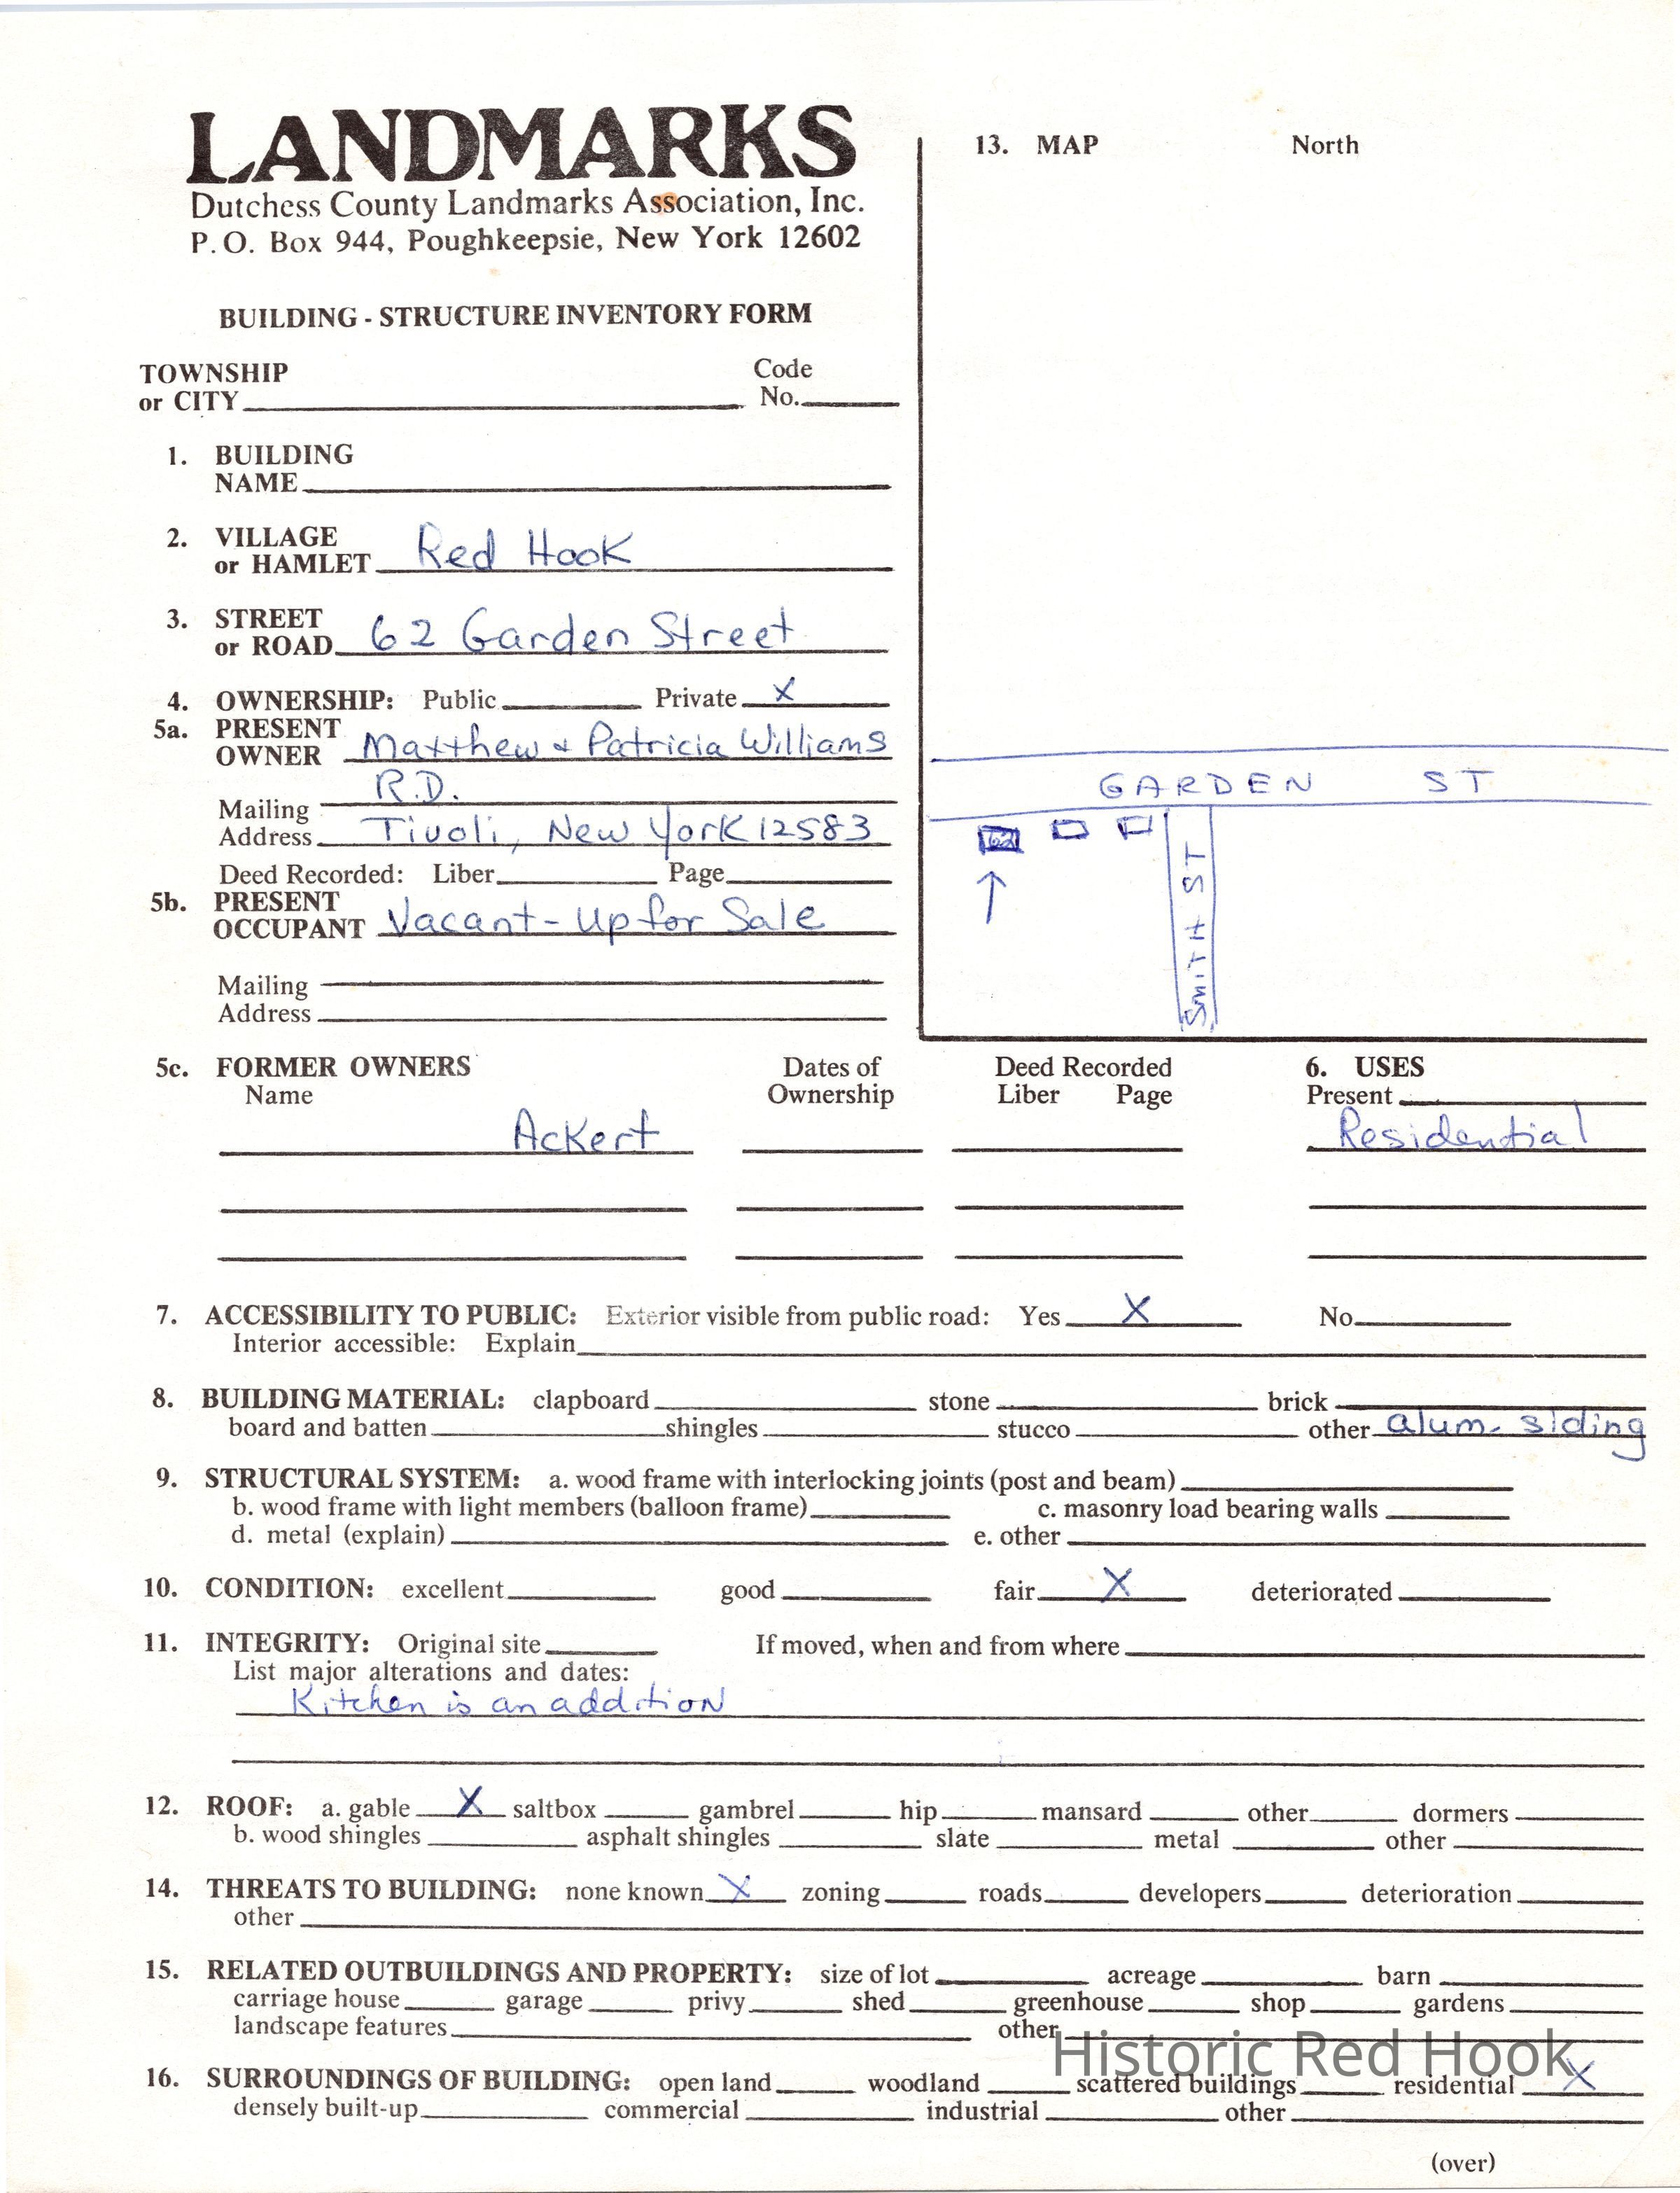 LANDMARKS
Dutchess County Landmarks Association, Inc.
P. O. Box 944, Poughkeepsie, New York 12602
BUILDING - STRUCTURE INVENTORY FORM
TOWNSHIP Code
or CITY No.
1. BUILDING
NAME
2. VILLAGE
or HAMLET Red Hook
3. STREET
or ROAD 62 Garden Street
4. OWNERSHIP: Public Private X
5a. PRESENT
OWNER Matthew & Patricia Williams
R.D.
Mailing
Address Tivoli, New York 12583
Deed Recorded: Liber Page
5b. PRESENT
OCCUPANT Vacant - Up for Sale
Mailing
Address
13. MAP North
GARDEN ST
62
SMITH ST
5c. FORMER OWNERS Dates of Deed Recorded 6. USES
Name Ownership Liber Page Present
Ackert Residential
7. ACCESSIBILITY TO PUBLIC: Exterior visible from public road: Yes X No
Interior accessible: Explain
8. BUILDING MATERIAL: clapboard stone brick
board and batten shingles stucco other alum. siding
9. STRUCTURAL SYSTEM: a. wood frame with interlocking joints (post and beam)
b. wood frame with light members (balloon frame) c. masonry load bearing walls
d. metal (explain) e. other
10. CONDITION: excellent good fair X deteriorated
11. INTEGRITY: Original site If moved, when and from where
List major alterations and dates:
Kitchen is an addition
12. ROOF: a. gable X saltbox gambrel hip mansard other dormers
b. wood shingles asphalt shingles slate metal other
14. THREATS TO BUILDING: none known X zoning roads developers deterioration
other
15. RELATED OUTBUILDINGS AND PROPERTY: size of lot acreage barn
carriage house garage privy shed greenhouse shop gardens
landscape features other
Historic Red Hook
16. SURROUNDINGS OF BUILDING: open land woodland scattered buildings residential X
densely built-up commercial industrial other
(over)